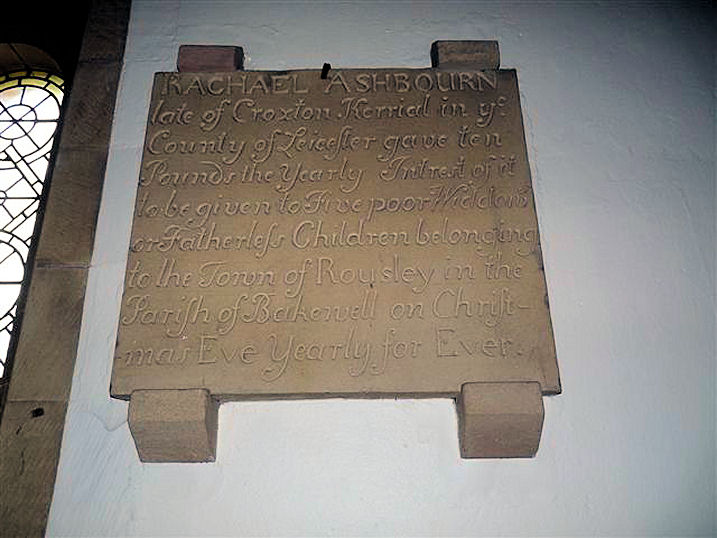 RACHAEL ASHBOURN
late of Croxton Kerrial in yᵉ
County of Leicester gave ten
Pounds the Yearly Intrest of it
to be given to Five poor Widdows
or Fatherless Children belonging
to the Town of Rousley in the
Parish of Bakewell on Christ-
mas Eve Yearly for Ever.